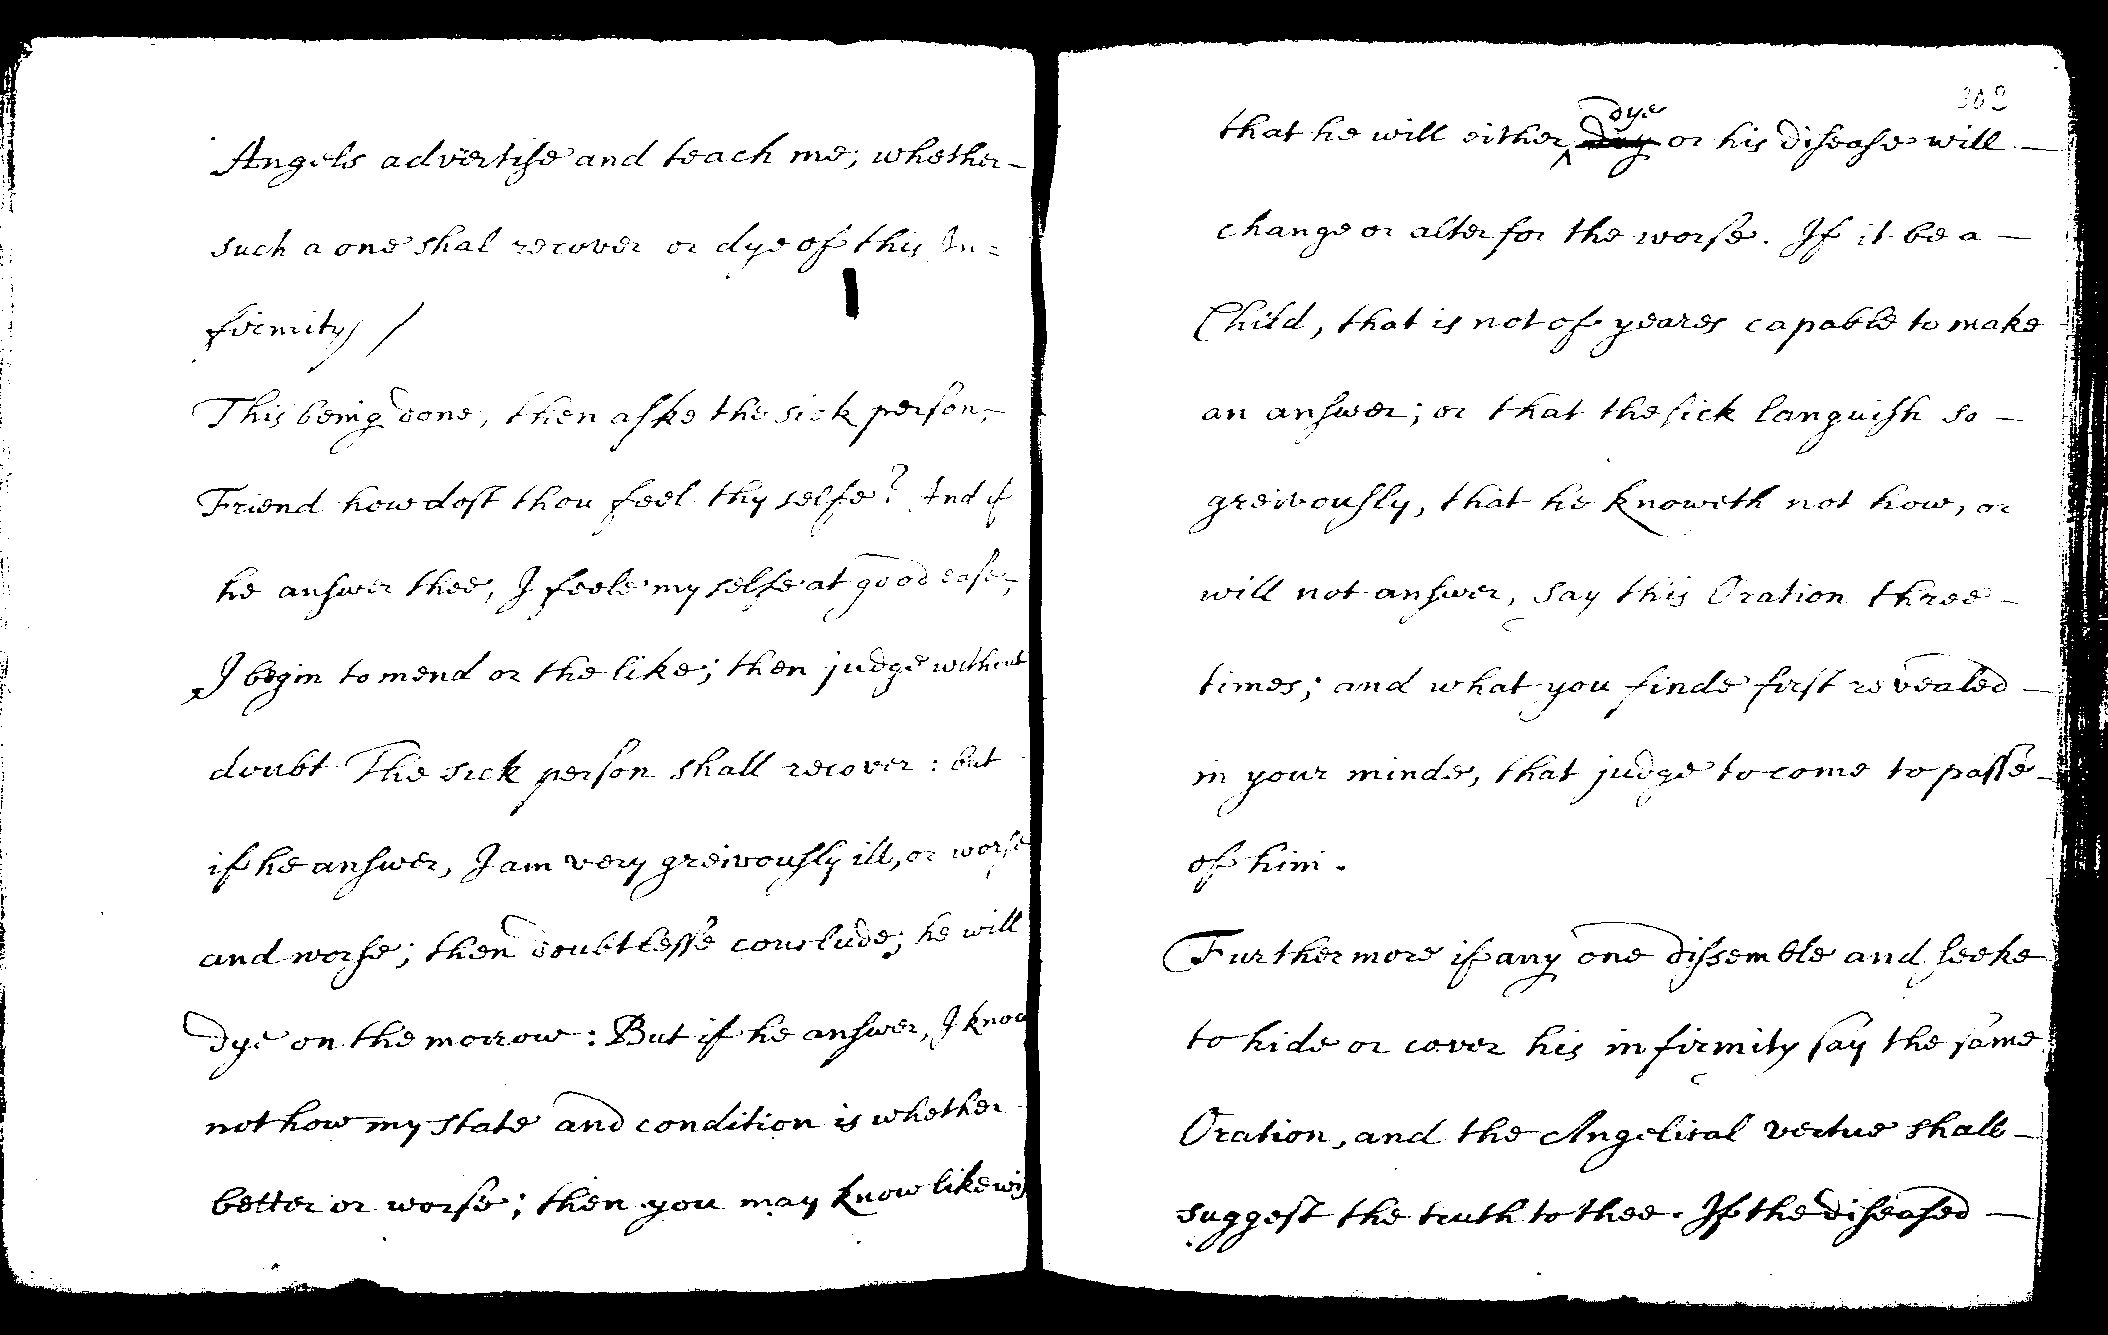 Angels advertise and teach me, whether –
such a one shal recover or dye of this In=
firmity /
This being done, then aske the sick person, –
Friend how dost thou feel thy selfe? And if
he answer thee, I feele my selfe at good ease,
I begin to mend or the like; then judge without
doubt The sick person shall recover: but
if he answer, I am very greivously ill, or worse
and worse; then doubtlesse conclude; he will
dye on the morrow: But if he answer, I know
not how my state and condition is whether
better or worse; then you may know likewis
302
that he will either dye or his disease will –
change or alter for the worse. If it be a –
Child, that is not of yeares capable to make
an answer; or that the sick languish so –
greivously, that he knoweth not how, or
will not answer, say this Oration three –
times; and what you finde first revealed –
in your minde, that judge to come to passe –
of him.
Furthermore if any one dissemble and seeke
to hide or cover his infirmity say the same
Oration, and the Angelical vertue shall –
suggest the truth to thee. If the diseased –